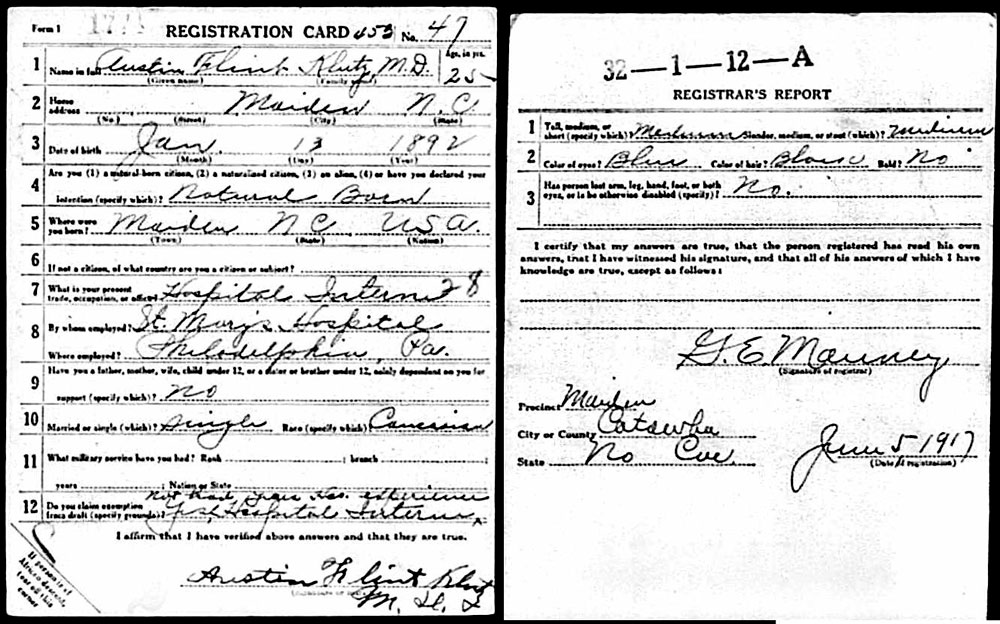 Form 1 REGISTRATION CARD 453 No. 47
1 Name in full Austin Flint Klutz, M.D. Age, in yrs. 25
(Given name) (Family name)
2 Home address Maiden N.C.
(No.) (Street) (City) (State)
3 Date of birth Jan 13 1892
(Month) (Day) (Year)
4 Are you (1) a natural-born citizen, (2) a naturalized citizen, (3) an alien, (4) or have you declared your
intention (specify which)? Natural Born
5 Where were you born? Maiden N C. USA.
(Town) (State) (Nation)
6 If not a citizen, of what country are you a citizen or subject?
7 What is your present trade, occupation, or office? Hospital Interne 28
8 By whom employed? St. Mary's Hospital
Where employed? Philadelphia, Pa.
9 Have you a father, mother, wife, child under 12, or a sister or brother under 12, solely dependent on you for
support (specify which)? No
10 Married or single (which)? Single Race (specify which) Caucasian
11 What military service have you had? Rank ; branch ;
years ; Nation or State
not had year
12 Do you claim exemption from draft (specify grounds)? Yes, Hospital Interne
I affirm that I have verified above answers and that they are true.
Austin Flint Klutz
If person is of African descent, tear off this corner
32—1—12—A
REGISTRAR'S REPORT
1 Tall, medium, or short (specify which)? Medium Slender, medium, or stout (which)? Medium
2 Color of eyes? Blue Color of hair? Bald? No
3 Has person lost arm, leg, hand, foot, or both eyes, or is he otherwise disabled (specify)? No.
I certify that my answers are true, that the person registered has read his own
answers, that I have witnessed his signature, and that all of his answers of which I have
knowledge are true, except as follows:
G. E. Mauney
(Signature of registrar)
Precinct Maiden
City or County Catawba
State No Car. June 5 1917
(Date of registration)